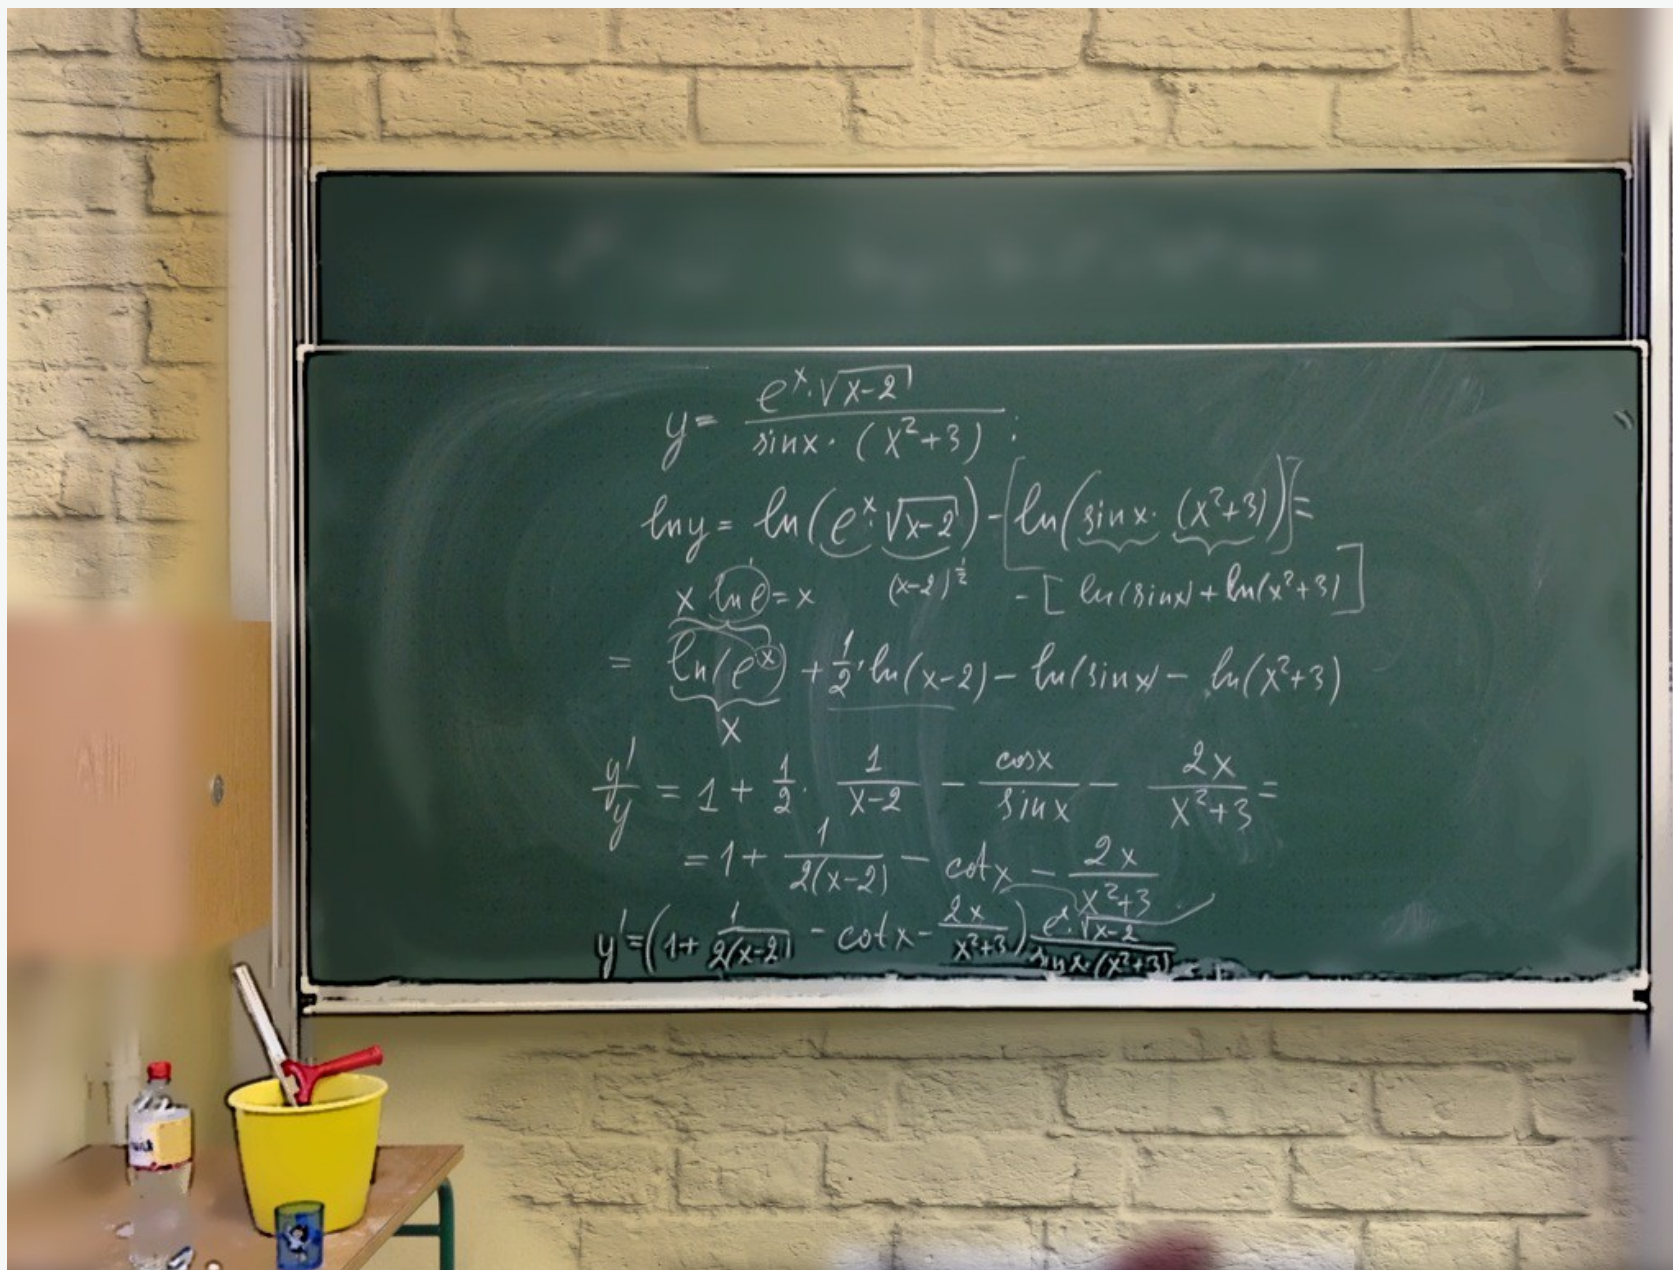 y = \frac{e^x \cdot \sqrt{x-2}}{\sin x \cdot (x^2+3)} ;
ln y = ln(e^x \cdot \sqrt{x-2}) - [ln(sin x \cdot (x^2+3))] =
x ln e = x (x-2)^{\frac{1}{2}} - [ln(sin x) + ln(x^2+3)]
1
= ln(e^x) + \frac{1}{2} \cdot ln(x-2) - ln(sin x) - ln(x^2+3)
x
\frac{y'}{y} = 1 + \frac{1}{2} \cdot \frac{1}{x-2} - \frac{cos x}{sin x} - \frac{2x}{x^2+3} =
= 1 + \frac{1}{2(x-2)} - cot x - \frac{2x}{x^2+3}
y' = (1 + \frac{1}{2(x-2)} - cot x - \frac{2x}{x^2+3}) \frac{e^x \cdot \sqrt{x-2}}{sin x \cdot (x^2+3)}